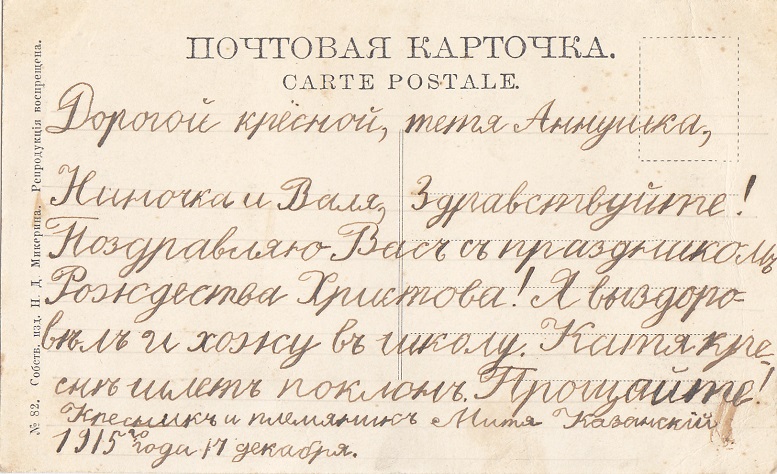 ПОЧТОВАЯ КАРТОЧКА.
CARTE POSTALE.
Дорогой крёсной, тетя Аннушка,
Ниночка и Валя, Здравствуйте!
Поздравляю Васъ съ праздникомъ
Рождества Христова! Я выздоро-
вѣлъ и хожу въ школу. Катя кре-
снѣ шлетъ поклонъ. Прощайте!
Кресникъ и племянникъ Митя Казанскій
1915го года 17 декабря.
№ 82. Собств. изд. П. Д. Микерина. Репродукція воспрещена.